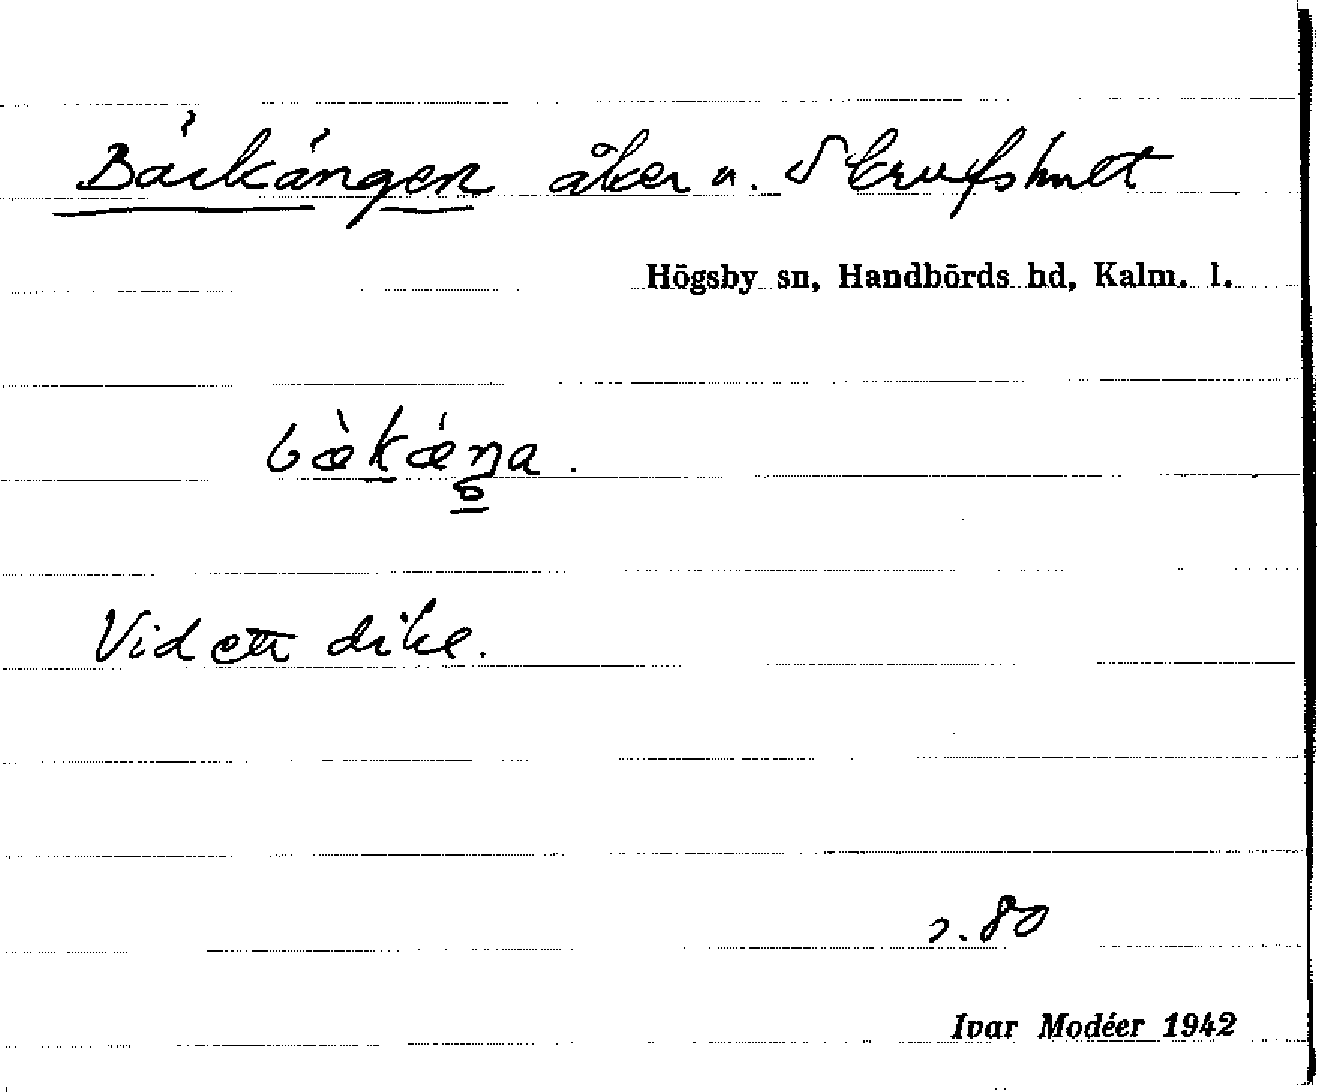 Bäckängen åker u. Skrufshult
Högsby sn, Handbörds hd, Kalm. l.
bæ̀kǽŋa.
Vid ett dike.
s. 80
Ivar Modéer 1942